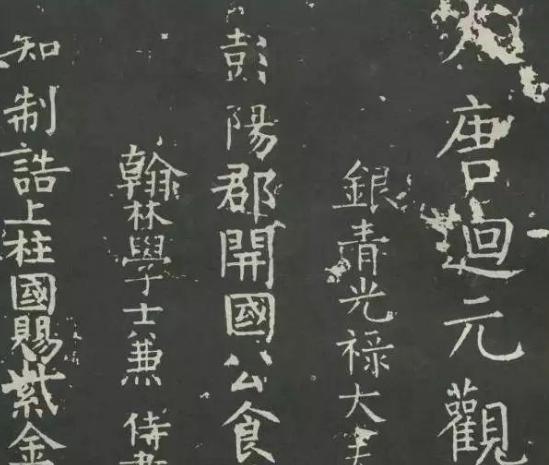 大唐迴元觀
銀青光祿大夫
彭陽郡開國公食
翰林學士兼侍書
知制誥上柱國賜紫金